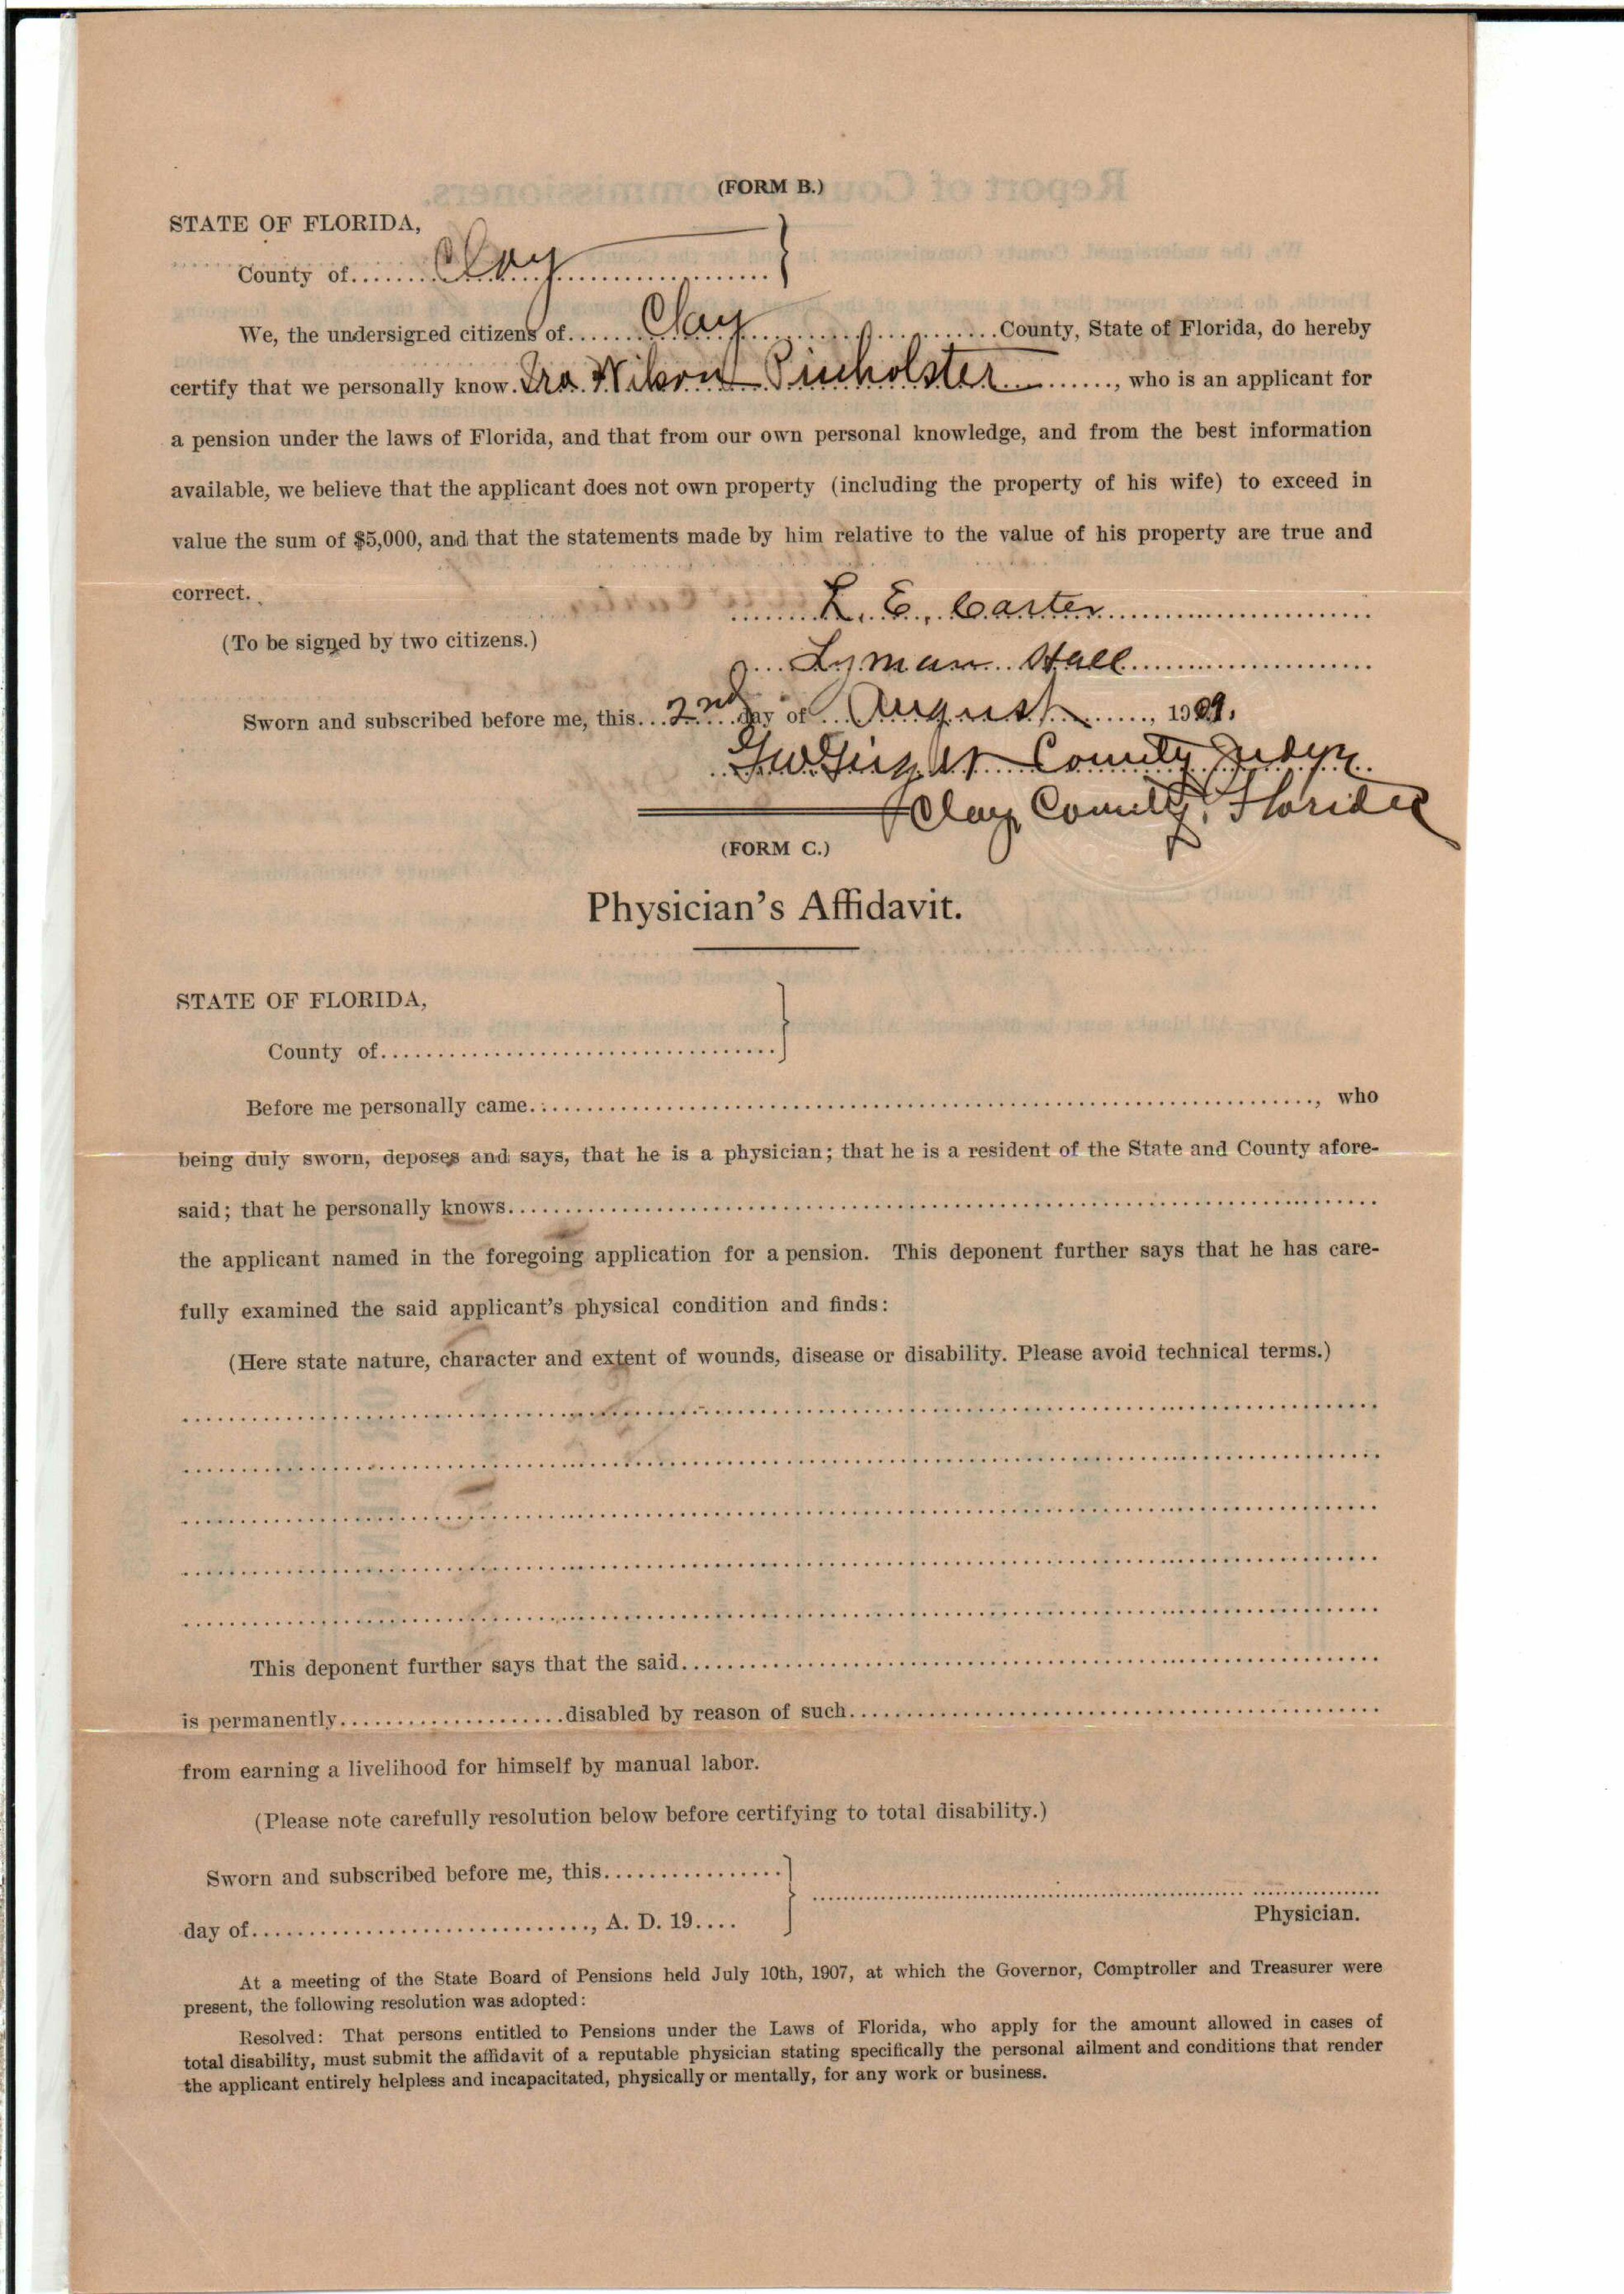 (FORM B.)
STATE OF FLORIDA,
County of Clay
We, the undersigned citizens of Clay County, State of Florida, do hereby
certify that we personally know Ira Wilson Pinholster, who is an applicant for
a pension under the laws of Florida, and that from our own personal knowledge, and from the best information
available, we believe that the applicant does not own property (including the property of his wife) to exceed in
value the sum of $5,000, and that the statements made by him relative to the value of his property are true and
correct.
L. E. Carter
(To be signed by two citizens.)
Lyman Hall
Sworn and subscribed before me, this 2nd day of August, 1909.
County Judge
Clay County, Florida
(FORM C.)
Physician's Affidavit.
STATE OF FLORIDA,
County of
Before me personally came, who
being duly sworn, deposes and says, that he is a physician; that he is a resident of the State and County afore-
said; that he personally knows
the applicant named in the foregoing application for a pension. This deponent further says that he has care-
fully examined the said applicant's physical condition and finds:
(Here state nature, character and extent of wounds, disease or disability. Please avoid technical terms.)
This deponent further says that the said
is permanently disabled by reason of such
from earning a livelihood for himself by manual labor.
(Please note carefully resolution below before certifying to total disability.)
Sworn and subscribed before me, this
day of, A. D. 19
Physician.
At a meeting of the State Board of Pensions held July 10th, 1907, at which the Governor, Comptroller and Treasurer were
present, the following resolution was adopted:
Resolved: That persons entitled to Pensions under the Laws of Florida, who apply for the amount allowed in cases of
total disability, must submit the affidavit of a reputable physician stating specifically the personal ailment and conditions that render
the applicant entirely helpless and incapacitated, physically or mentally, for any work or business.